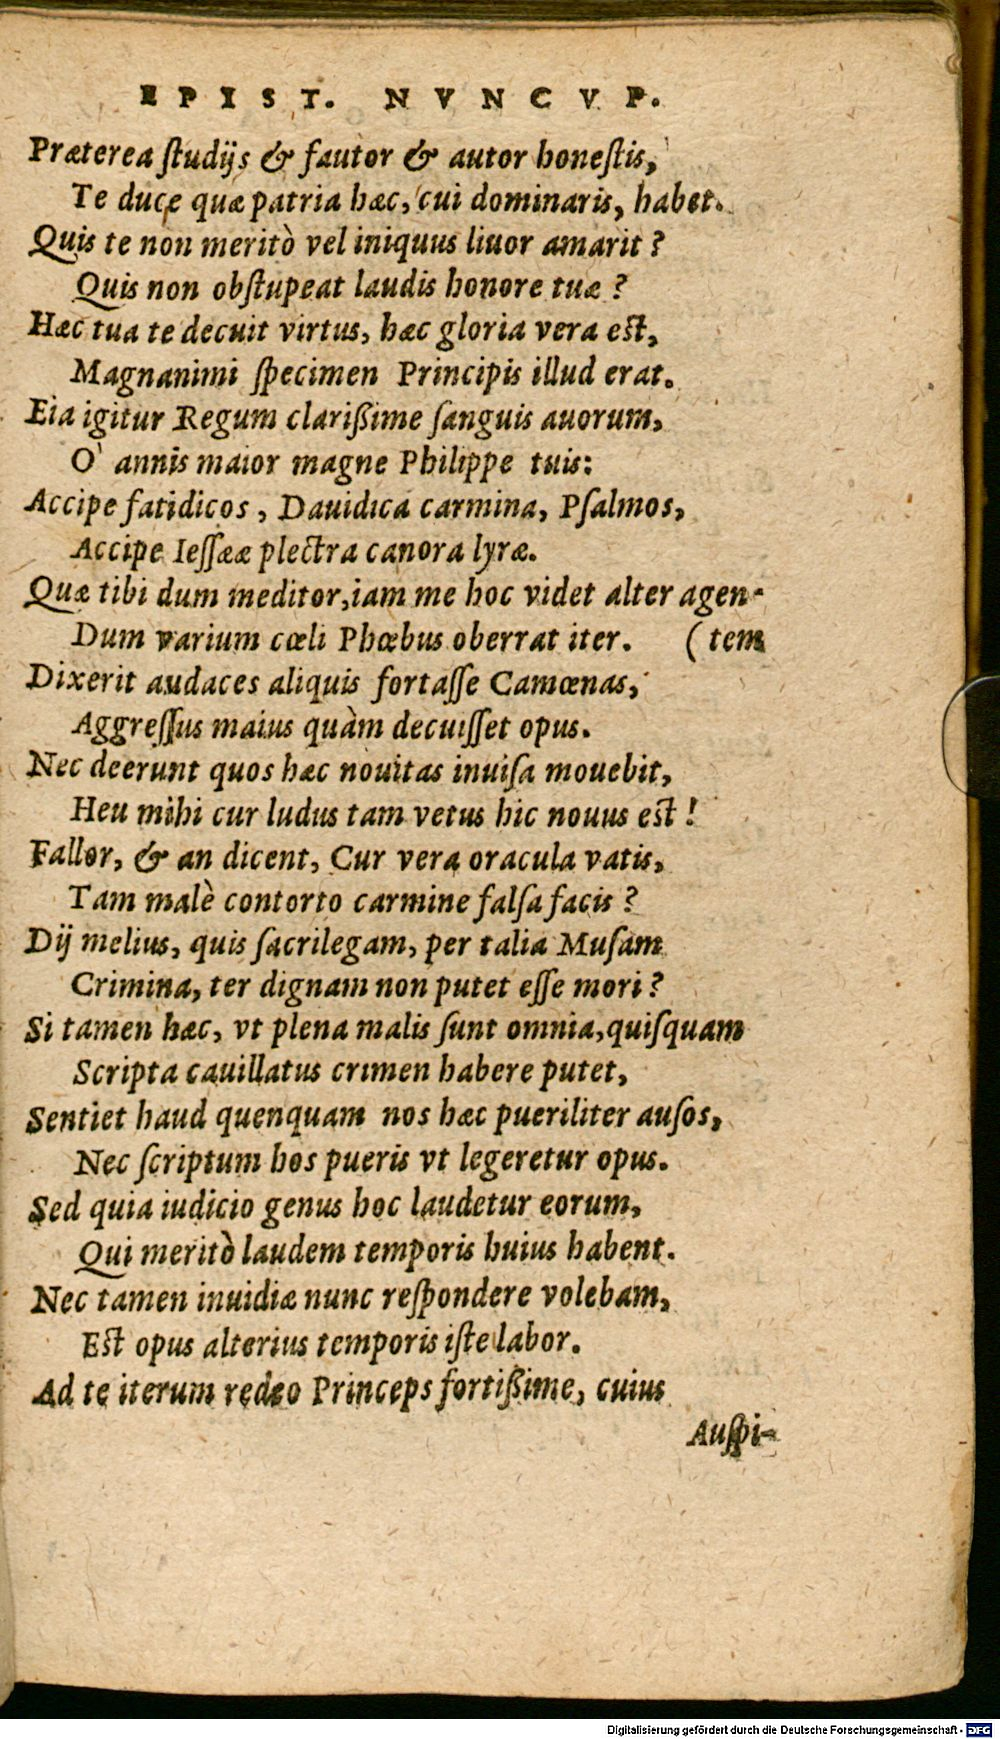 EPIST. NVNCVP.
Præterea ſtudijs & fautor & autor honeſtis,
Te duce quæ patria hæc, cui dominaris, habet.
Quis te non meritò vel iniquus liuor amarit?
Quis non obſtupeat laudis honore tuæ?
Hæc tua te decuit virtus, hæc gloria vera eſt,
Magnanimi ſpecimen Principis illud erat.
Eia igitur Regum clarißime ſanguis auorum,
O' annis maior magne Philippe tuis:
Accipe fatidicos, Dauidica carmina, Pſalmos,
Accipe Ieſſææ plectra canora lyræ.
Quæ tibi dum meditor,iam me hoc videt alter agen-
Dum varium cœli Phœbus oberrat iter. (tem
Dixerit audaces aliquis fortaſſe Camœnas,
Aggreſſus maius quàm decuiſſet opus.
Nec deerunt quos hæc nouitas inuiſa mouebit,
Heu mihi cur ludus tam vetus hic nouus eſt!
Fallor, & an dicent, Cur vera oracula vatis,
Tam malè contorto carmine falſa facis?
Dij melius, quis ſacrilegam, per talia Muſam
Crimina, ter dignam non putet eſſe mori?
Si tamen hæc, vt plena malis ſunt omnia,quiſquam
Scripta cauillatus crimen habere putet,
Sentiet haud quenquam nos hæc pueriliter auſos,
Nec ſcriptum hos pueris vt legeretur opus.
Sed quia iudicio genus hoc laudetur eorum,
Qui meritò laudem temporis huius habent.
Nec tamen inuidiæ nunc reſpondere volebam,
Eſt opus alterius temporis iſte labor.
Ad te iterum redeo Princeps fortißime, cuius
Auſpi-
Digitalisierung gefördert durch die Deutsche Forschungsgemeinschaft - DFG